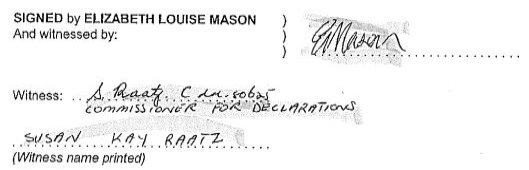 SIGNED by ELIZABETH LOUISE MASON ) EMason
And witnessed by: )
)
Witness: S. Raatz C dec. 80625
COMMISSIONER FOR DECLARATIONS
SUSAN KAY RAATZ
(Witness name printed)